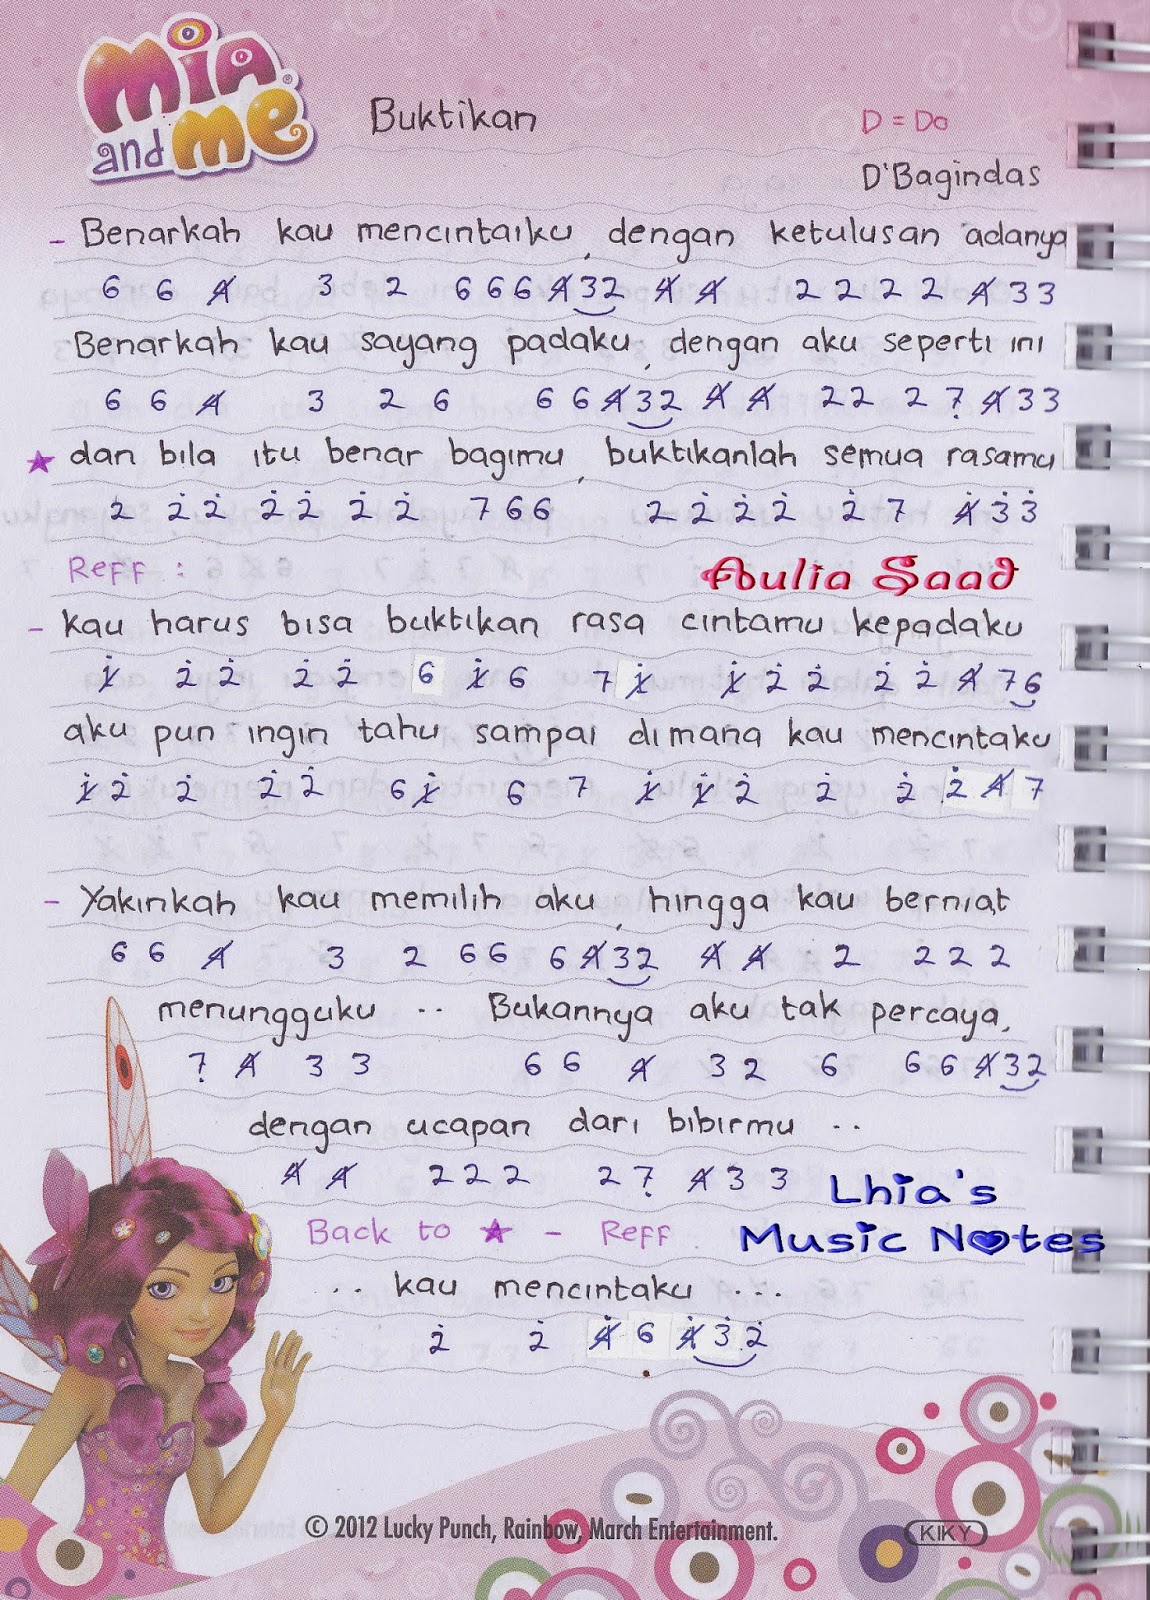 mia and me
Buktikan D = Do
D'Bagindas
- Benarkah kau mencintaiku, dengan ketulusan adanya
6 6 4̸ 3 2 6 6 6 4̸ 3 2 4̸ 4̸ 2 2 2 2 4̸ 3 3
Benarkah kau sayang padaku, dengan aku seperti ini
6 6 4̸ 3 2 6 6 6 4̸ 3 2 4̸ 4̸ 2 2 2 7̣ 4̸ 3 3
★ dan bila itu benar bagimu, buktikanlah semua rasamu
2 2̇ 2̇ 2̇ 2̇ 2̇ 2̇ 7 6 6 2 2̇ 2̇ 2̇ 2̇ 7 4̸̇ 3̇ 3̇
Reff : Aulia Saad
- kau harus bisa buktikan rasa cintamu kepadaku
1̸̇ 2̇ 2̇ 2̇ 2̇ 6 1̸̇ 6 7 1̸̇ 1̸̇ 2̇ 2̇ 2̇ 2̇ 4̸ 7 6
aku pun ingin tahu sampai dimana kau mencintaku
1̸̇ 2̇ 2̇ 2̇ 2̇ 6 1̸̇ 6 7 1̸̇ 1̸̇ 2̇ 2̇ 2̇ 2̇ 4̸ 7
- Yakinkah kau memilih aku, hingga kau berniat
6 6 4̸ 3 2 6 6 6 4̸ 3 2 4̸ 4̸ 2 2 2 2
menungguku .. Bukannya aku tak percaya,
7̣ 4̸ 3 3 6 6 4̸ 3 2 6 6 6 4̸ 3 2
dengan ucapan dari bibirmu ..
4̸ 4̸ 2 2 2 2 7̣ 4̸ 3 3
Lhia's
Back to ★ - Reff
Music Notes
.. kau mencintaku ...
2̇ 2̇ 4̸̇ 6 4̸̇ 3̇ 2̇
© 2012 Lucky Punch, Rainbow, March Entertainment.
KIKY